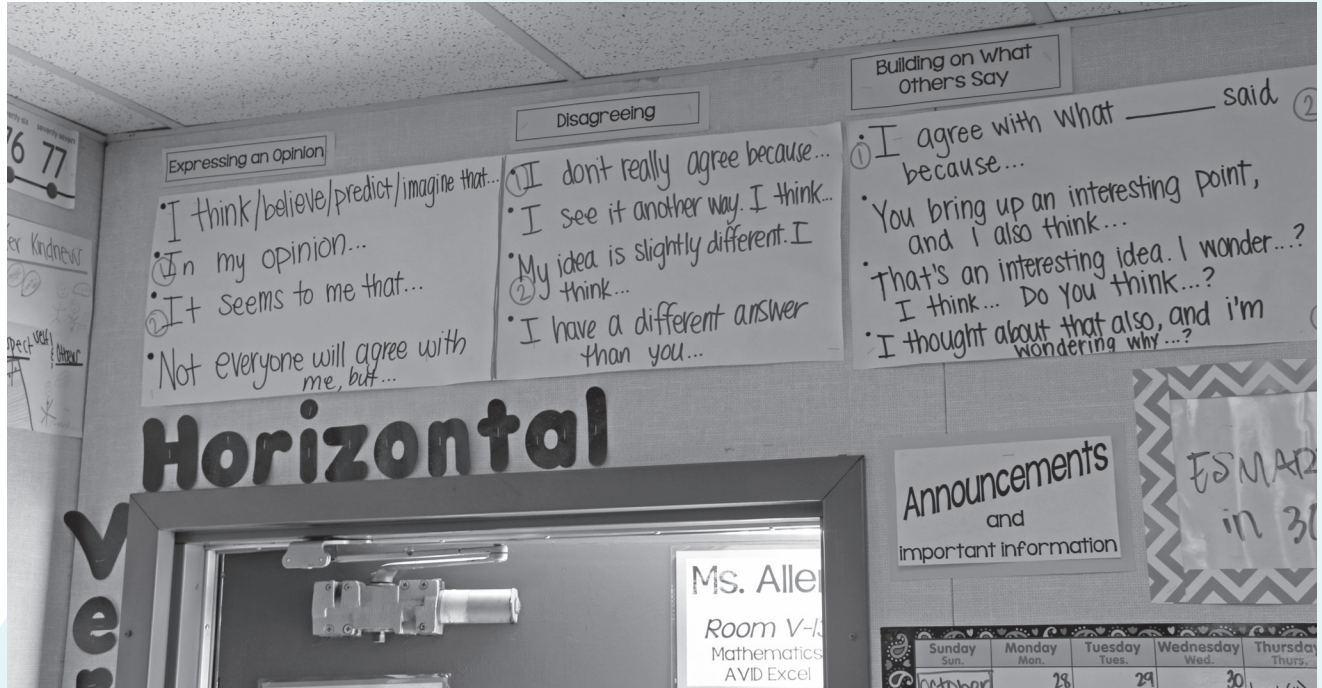 seventy seven
76
77
Kindness
Others
Expressing an Opinion
• I think/believe/predict/imagine that...
• ① In my opinion...
• ② It seems to me that...
• Not everyone will agree with
me, but...
Disagreeing
① I don't really agree because...
• I see it another way. I think...
• My idea is slightly different. I
② think...
• I have a different answer
than you...
Building on What
Others Say
• I agree with what ______ said ②
① because...
• You bring up an interesting point,
and I also think...
• That's an interesting idea. I wonder...?
I think... Do you think...?
• I thought about that also, and i'm
wondering why...?
Horizontal
Ver
Announcements
and
important information
in 30
Ms. Alle
Room V-13
Mathematics
AVID Excel
Sunday Monday Tuesday Wednesday Thursday
Sun. Mon. Tues. Wed. Thurs.
October 28 29 30